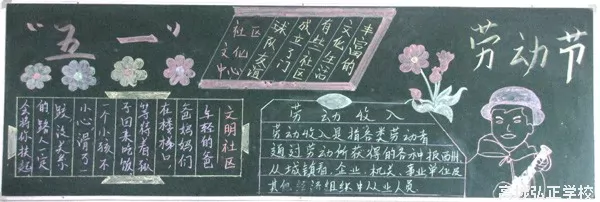 “五一”
劳动节
社区
文化
中心
丰富的
文化生活
有些社区
成立了门
球队友谊
文明社区
年轻的爸
爸妈妈们
在楼梯口
等待着孩
子回来吃饭
一个小孩不
小心滑了一
跤没关系
的路人一定
会将你扶起
劳动收入
劳动收入是指各类劳动者
通过劳动所获得的各种报酬
从城镇看,企业、机关、事业单位及
其他经济组织中从业人员
弘正学校